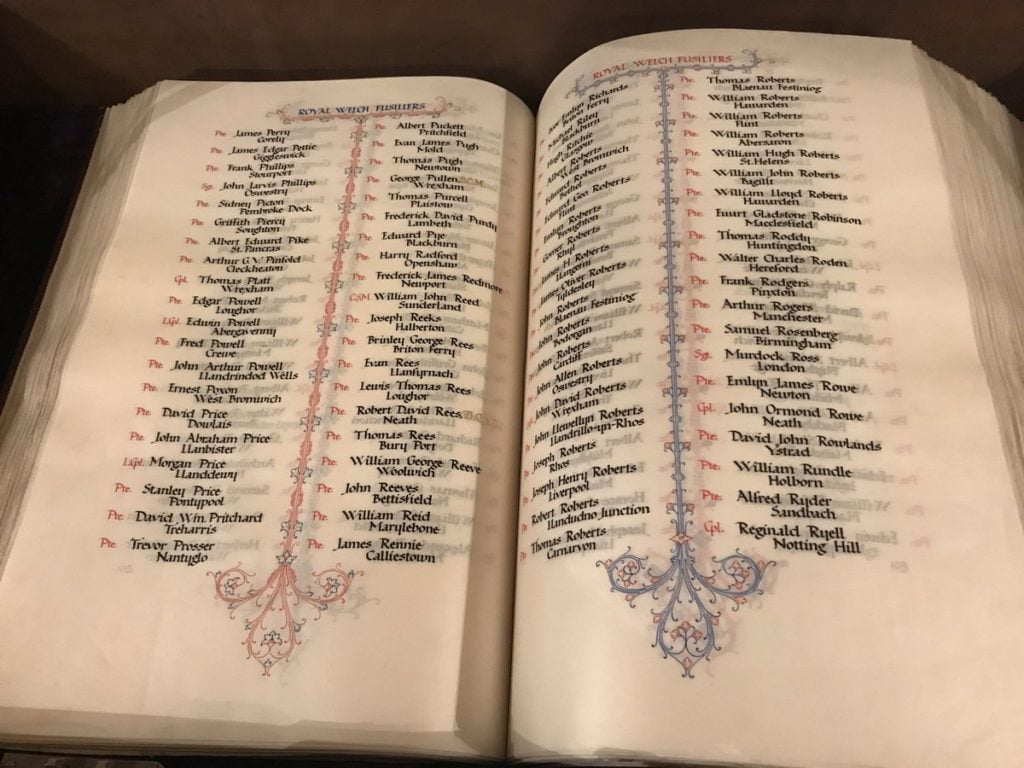 ROYAL WELCH FUSILIERS
Pte. James Perry
Corely
Pte. James Edgar Pettie
Giggleswick
Pte. Frank Phillips
Stourport
Sgt. John Jarvis Phillips
Oswestry
Pte. Sidney Picton
Pembroke Dock
Pte. Griffith Piercy
Soughton
Pte. Albert Edward Pike
St. Pancras
Pte. Arthur G.V. Pinfold
Cleckheaton
Cpl. Thomas Platt
Wrexham
Pte. Edgar Powell
Loughor
L.Cpl. Edwin Powell
Abergavenny
Pte. Fred Powell
Crewe
Pte. John Arthur Powell
Llandrindod Wells
Pte. Ernest Poxon
West Bromwich
Pte. David Price
Dowlais
Pte. John Abraham Price
Llanbister
L.Cpl. Morgan Price
Llanddewy
Pte. Stanley Price
Pontypool
Pte. David Wm. Pritchard
Treharris
Pte. Trevor Prosser
Nantyglo
Pte. Albert Puckett
Pritchfield
Pte. Evan James Pugh
Mold
Pte. Thomas Pugh
Newtown
Pte. George Pullen, D.C.M.
Wrexham
Pte. Thomas Purcell
Plaistow
Pte. Frederick David Purdy
Lambeth
Pte. Edward Pye
Blackburn
Pte. Harry Radford
Openshaw
Pte. Frederick James Redmore
Newport
C.S.M. William John Reed
Sunderland
Pte. Joseph Reeks
Halberton
Pte. Brinley George Rees
Briton Ferry
Pte. Evan Rees
Llanfyrnach
Pte. Lewis Thomas Rees
Loughor
Pte. Robert David Rees,
Neath
Pte. Thomas Rees
Bury Port
Pte. William George Reeve
Woolwich
Pte. John Reeves
Bettisfield
Pte. William Reid
Marylebone
Pte. James Rennie
Calliestown
ROYAL WELCH FUSILIERS
Emlyn Richards
Briton Ferry
Michael Riley
Blackburn
Hugh Ritchie
Glasgow
Albert Roberts
West Bromwich
Edmund Roberts
Bethel
Edward Geo. Roberts
Flint
Emlyn Roberts
Broughton
Roberts
Rhyl
James H. Roberts
Llangerni
James Oliver Roberts
Tyldesley
John Roberts
Blaenau Festiniog
John Roberts
Bodorgan
John Roberts
Cardiff
John Allen Roberts
Oswestry
John David Roberts
Wrexham
John Llewellyn Roberts
Llandrillo-yn-Rhos
Joseph Roberts
Rhos
Joseph Henry Roberts
Liverpool
Robert Roberts
Llandudno Junction
Thomas Roberts
Carnarvon
Pte. Thomas Roberts
Blaenau Festiniog
Pte. William Roberts
Hawarden
Pte. William Roberts
Flint
Pte. William Roberts
Abersaron
Pte. William Hugh Roberts
St. Helens
Pte. William John Roberts
Bagillt
Pte. William Lloyd Roberts
Hawarden
Pte. Ewart Gladstone Robinson
Macclesfield
Pte. Thomas Roddy
Huntingdon
Pte. Walter Charles Roden
Hereford
Pte. Frank Rodgers
Pinxton
Pte. Arthur Rogers
Manchester
Pte. Samuel Rosenberg
Birmingham
Sgt. Murdock Ross
London
Pte. Emlyn James Rowe
Newton
Cpl. John Ormond Rowe
Neath
Pte. David John Rowlands
Ystrad
Pte. William Rundle
Holborn
Pte. Alfred Ryder
Sandbach
Cpl. Reginald Ryell
Notting Hill